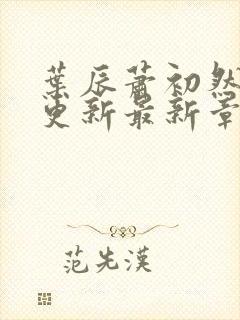 葉辰蕭初然
更新最新章
范先漢